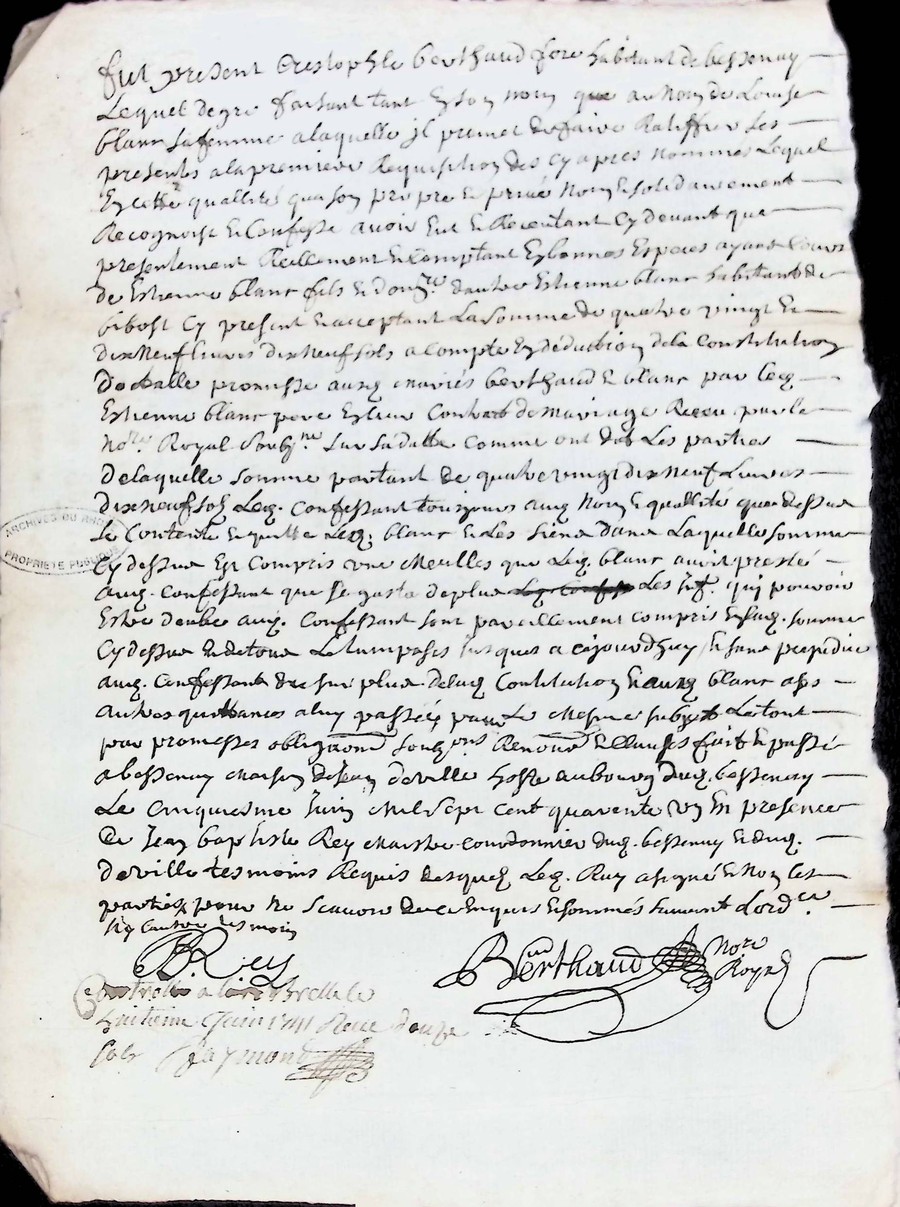 fut present Cristophle berthaud fore habitant de bessenay
Lequel de gre faisant tant En son nom que au Nom de Louise
blanc sa femme a laquelle jl promet de faire Ratiffier Les
presentes a la premiere Requisition des Cy apres nommés Lequel
En cette quallités qua son propre et privé Nom et solidairement
Recognoist et Confesse avoir Eut et Receu tant Cy devant que
presentement Reellement et Comptant En bonnes Especes ayant Cours
de Estienne blanc fils et donre. dautre Estienne blanc habitant de
bibost Cy present et acceptant La somme de quatre vingt et
dix Neuf Livres dix neuf sols a Compte En déduction de la Constitution
Dotalle promisse ausq. mariés berthaud et blanc par leq.
Estienne blanc pere En leur Contrat de mariage Receu par le
Nore. Royal Soubne. sur sa datte Comme ont dit Les parties
De laquelle somme partant de quatre vingt dix neuf Livres
dix neuf sols Leq. Confessant toujours auq. Nom et quallité que dessus
se Contente et quitte Leq. blanc et Les siens dans Laquelle somme
Cy dessus Est Compris une Meulles que Leq. blanc avoit presté
auq. Confessant que se gasta de plus Les jnt. qui pouvoir
Estre deubs auq. Confessant sont pareillement compris En laq. somme
Cy dessus Et de tous Le tempassés jusques a cejourdhuy et sans prejudice
auq. Confessant du surplus de laq. Constitution Et auq. blanc aps
autres quittances a luy passées par Le mesme Le tout
par promesses obligaons. Renons. et Clauses fait et passé
a bessenay maison de Jean deville hoste au bourg duq. bessenay
Le Cinquiesme Juin Mil sept cent quarente un En presence
De Jean baptiste Rey Maistre cordonnier duq. bessenay et duq.
deville tesmoins Requis desquels Leq. Rey a signé et Non les
parties pour ne scavoir de ce Enquis et sommés suivant Lordce.
Ny Lautre tesmoin
JB Rey
Berthaud Nore Royal
Controllé a Larbrelle le
huitieme Juin 1741 Receu douze
sols Raymond
ARCHIVES DU RHÔNE
PROPRIÉTÉ PUBLIQUE